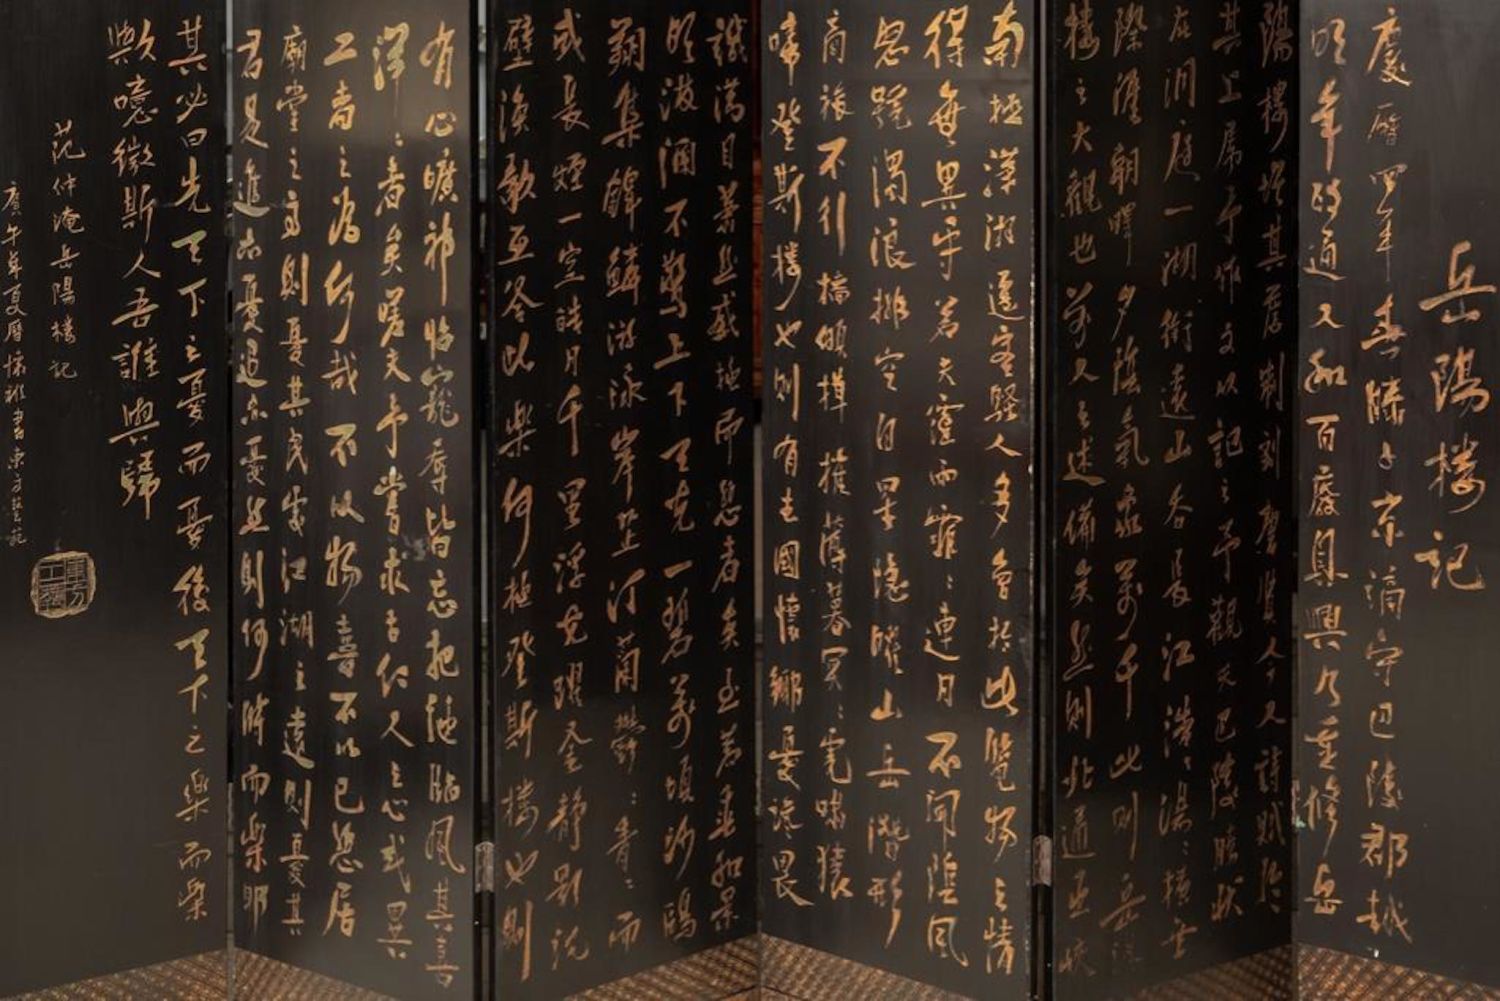 岳陽楼记
慶曆四年春滕子京謫守巴陵郡越
明年政通人和百廢具興乃重修岳
陽樓增其舊制刻唐賢今人詩賦於
其上屬予作文以記之予觀夫巴陵勝狀
在洞庭一湖銜遠山吞長江浩〻湯〻橫無
際涯朝暉夕陰氣象萬千此則岳陽
樓之大觀也前人之述備矣然則北通巫峽
南極瀟湘遷客騷人多會於此覽物之情
得無異乎若夫霪雨霏〻連月不開陰風
怒號濁浪排空日星隱曜山岳潛形
商旅不行檣傾楫摧薄暮冥〻虎嘯猿
啼登斯樓也則有去國懷鄉憂讒畏
譏滿目蕭然感極而悲者矣至若春和景
明波瀾不驚上下天光一碧萬頃沙鷗
翔集錦鱗游泳岸芷汀蘭鬱〻青〻而
或長煙一空皓月千里浮光躍金靜影沉
璧漁歌互答此樂何極登斯樓也則
有心曠神怡寵辱皆忘把酒臨風其喜
洋〻者矣嗟夫予嘗求古仁人之心或異
二者之為何哉不以物喜不以己悲居
廟堂之高則憂其民處江湖之遠則憂其
君是進亦憂退亦憂然則何時而樂耶
其必曰先天下之憂而憂後天下之樂而樂
歟噫微斯人吾誰與歸
范仲淹岳陽楼记
庚午年夏曆書東方